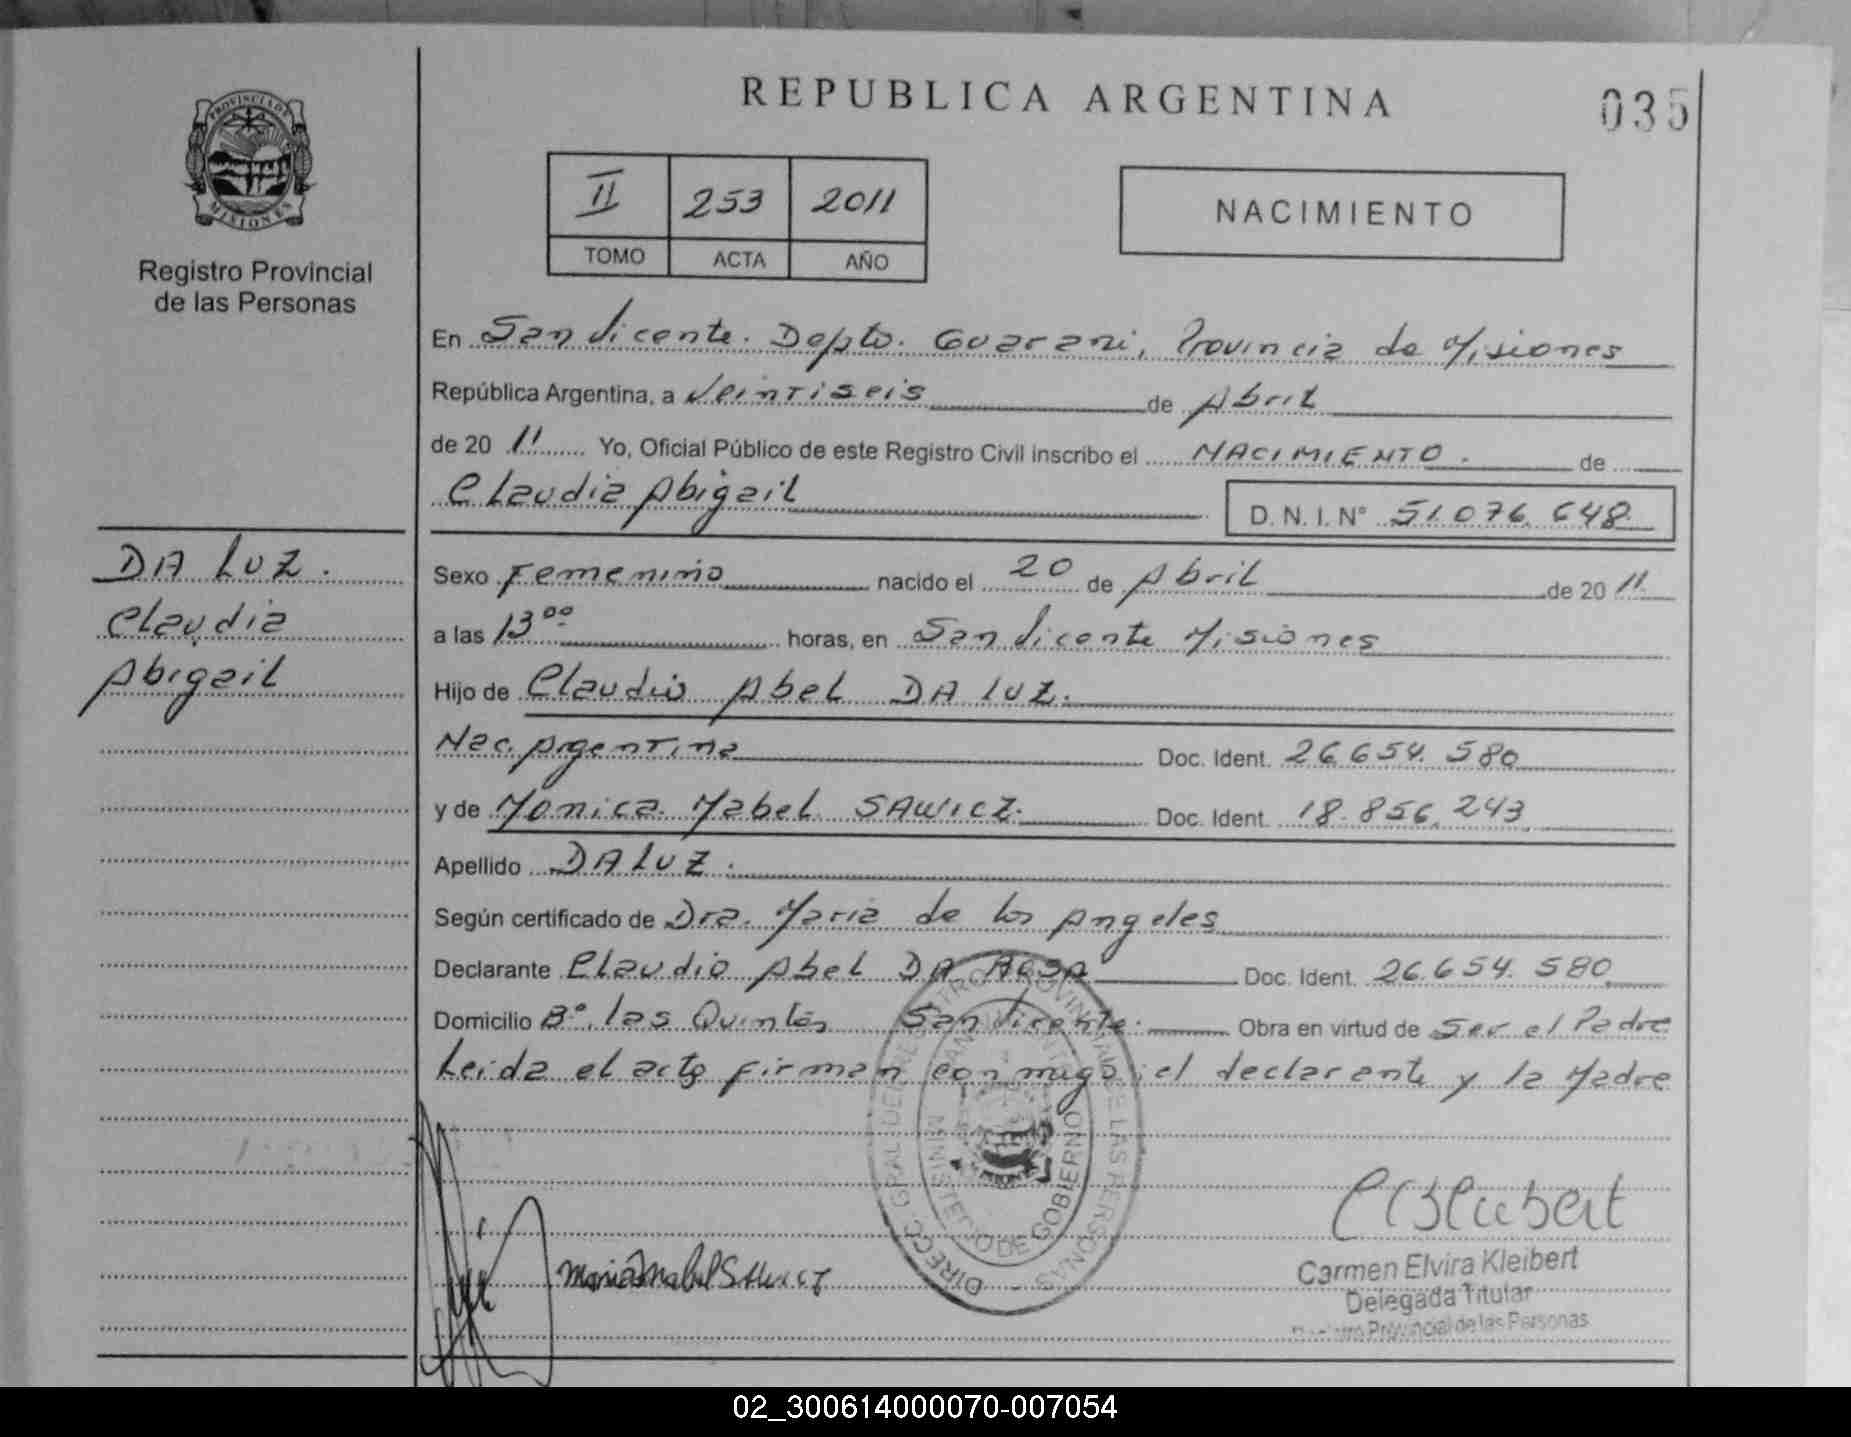 REPUBLICA ARGENTINA
035
PROVINCIA DE
MISIONES
Registro Provincial
de las Personas
II 253 2011
TOMO ACTA AÑO
NACIMIENTO
En San Vicente. Depto. Guarani, Provincia de Misiones
República Argentina, a Veintiseis de Abril
de 20 11 Yo, Oficial Público de este Registro Civil inscribo el NACIMIENTO. de
Claudia Abigail D. N. I. N° 51.076.648
DA LUZ.
Claudia
Abigail
Sexo Femenino nacido el 20 de Abril de 20 11.
a las 13 00 horas, en San Vicente Misiones
Hijo de Claudio Abel DA LUZ.
Nac. Argentina Doc. Ident. 26.654.580
y de Monica Mabel SAWICZ. Doc. Ident. 18.856.243
Apellido DA LUZ.
Según certificado de Dra. Maria de los Angeles
Declarante Claudio Abel DA ROSA Doc. Ident. 26.654.580
Domicilio B° las Quintas San Vicente. Obra en virtud de Ser el Padre
Leida el acta firman conmigo el declarante y la Madre
DIRECC. GRAL. DEL REGISTRO PROVINCIAL DE LAS PERSONAS
MINISTERIO DE GOBIERNO
SAN VICENTE
Carmen Elvira Kleibert
Delegada Titular
Registro Provincial de las Personas
02_300614000070-007054